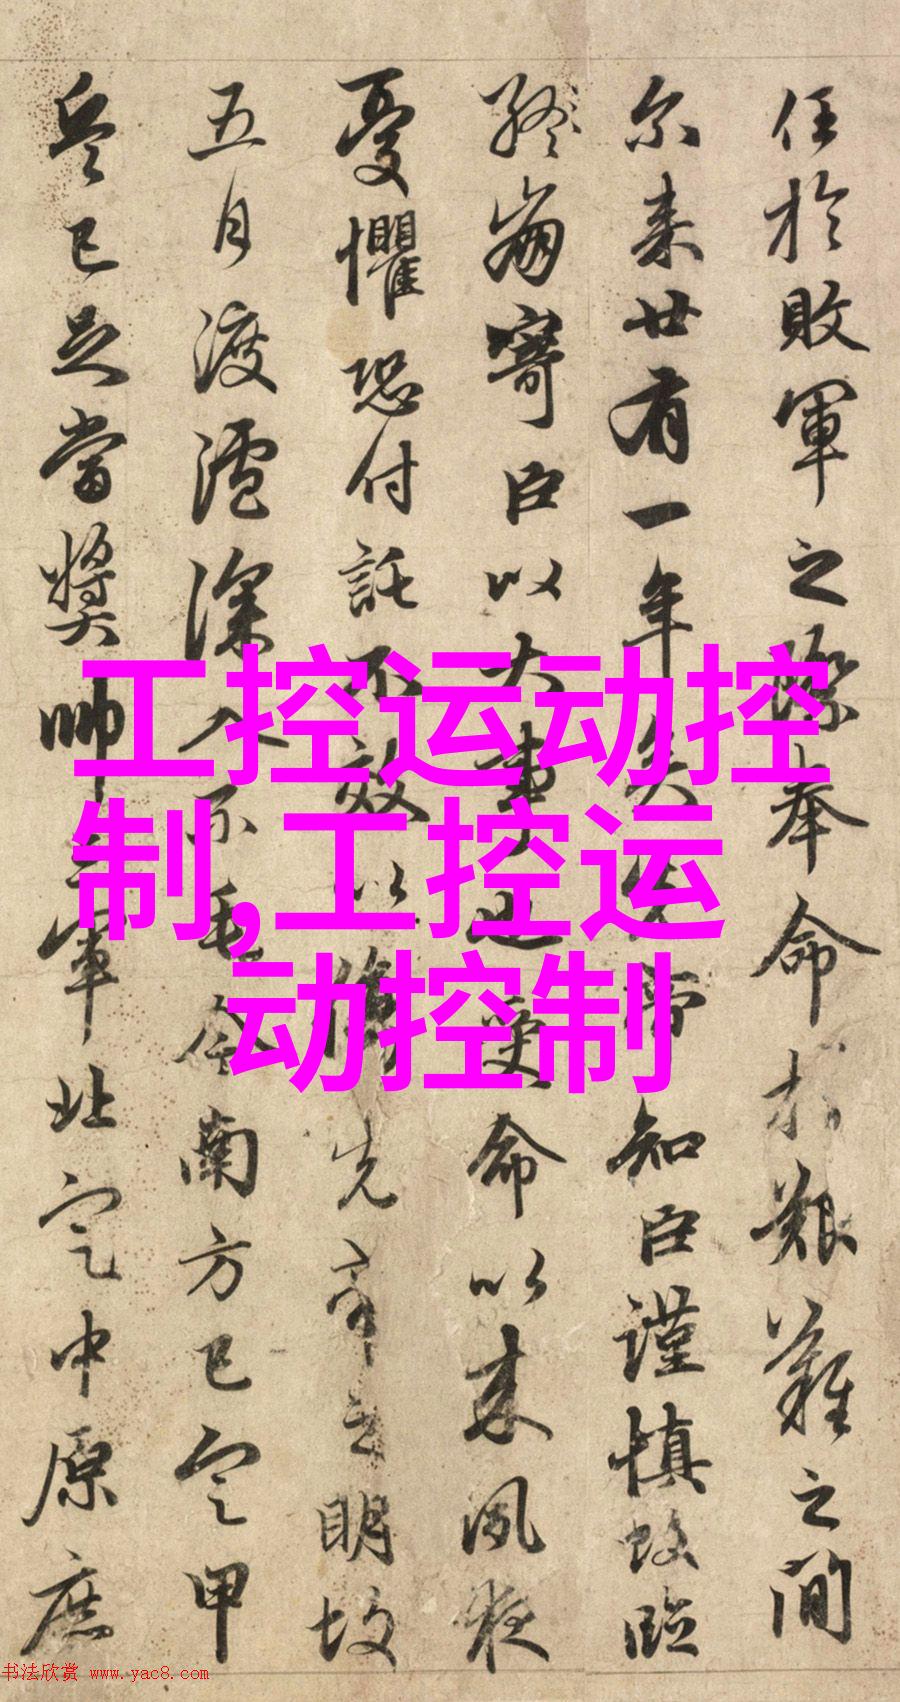 任於敗軍之際奉命於艱難之間
尔来廿有一年矣先帝知臣謹慎故臨
終崩寄臣以大事也受命以来夙夜
憂懼恐付託不效以傷先帝之明故
五月渡瀘深入不毛今南方已定甲
兵已足當獎帥三軍北定中原庶
工控运动控
制,工控运
动控制
书法欣赏 www.yac8.com